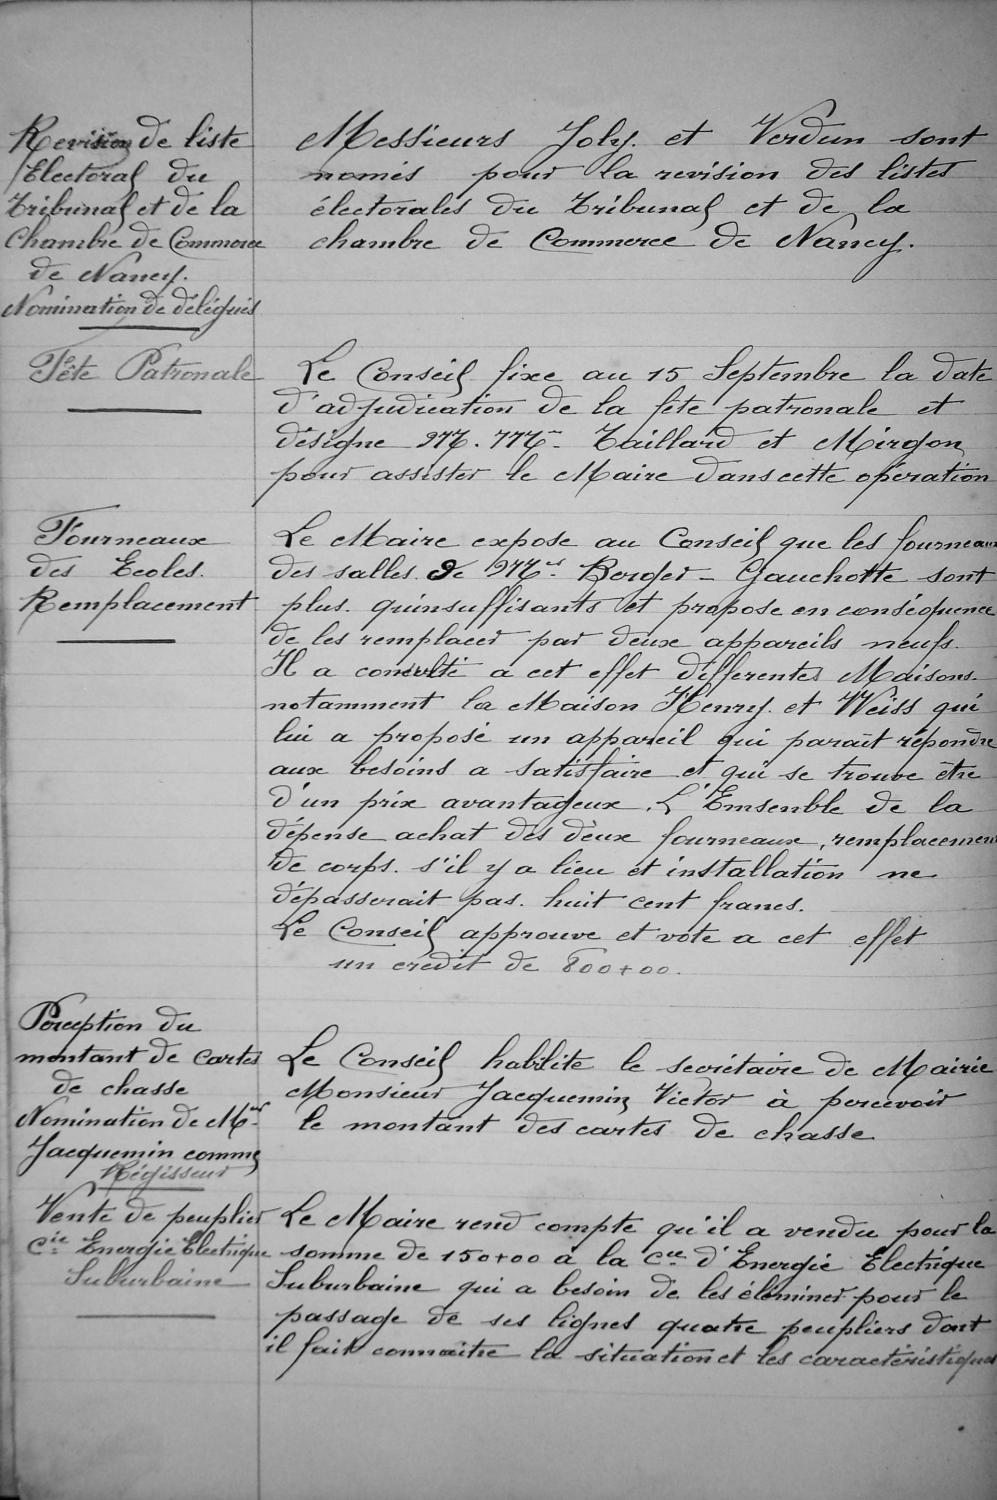 Revision de liste
Electoral du
Tribunal et de la
Chambre de Commerce
de Nancy.
Nomination de délégués
Messieurs Joly. et Verdun sont
només pour la revision des listes
électorales du Tribunal et de la
chambre de Commerce de Nancy.
Fête Patronale
Le Conseil fixe au 15 Septembre la date
d'adjudication de la fête patronale et
désigne MM. Taillard et Mirgon
pour assister le Maire dans cette opération
Fourneaux
des Ecoles.
Remplacement
Le Maire expose au Conseil que les fourneaux
des salles de Mrs. Berger - Gauchotte sont
plus. qu'insuffisants et propose en conséquence
de les remplacer par deux appareils neufs.
Il a consulté a cet effet différentes Maisons
notamment la Maison Henry. et Weiss qui
lui a proposé un appareil qui parait répondre
aux besoins a satisfaire et qui se trouve être
d'un prix avantageux. L'Emsenble de la
dépense achat des deux fourneaux, remplacement
de corps. s'il y a lieu et installation ne
dépasserait pas. huit cent francs.
Le Conseil approuve et vote a cet effet
un crédit de 800+00.
Perception du
montant de cartes
de chasse
Nomination de Mr
Jacquemin comme
Régisseur
Le Conseil habilite le secrétaire de Mairie
Monsieur Jacquemin Victor à percevoir
le montant des cartes de chasse
Vente de peuplier
Cie Energie Electrique
Suburbaine
Le Maire rend compte qu'il a vendu pour la
somme de 150+00 à la Cie d'Energie Electrique
Suburbaine qui a besoin de les éléminer pour le
passage de ses lignes quatre peupliers dont
il fait connaitre la situation et les caractéristiques